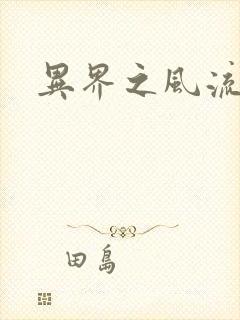 異界之風流
田島